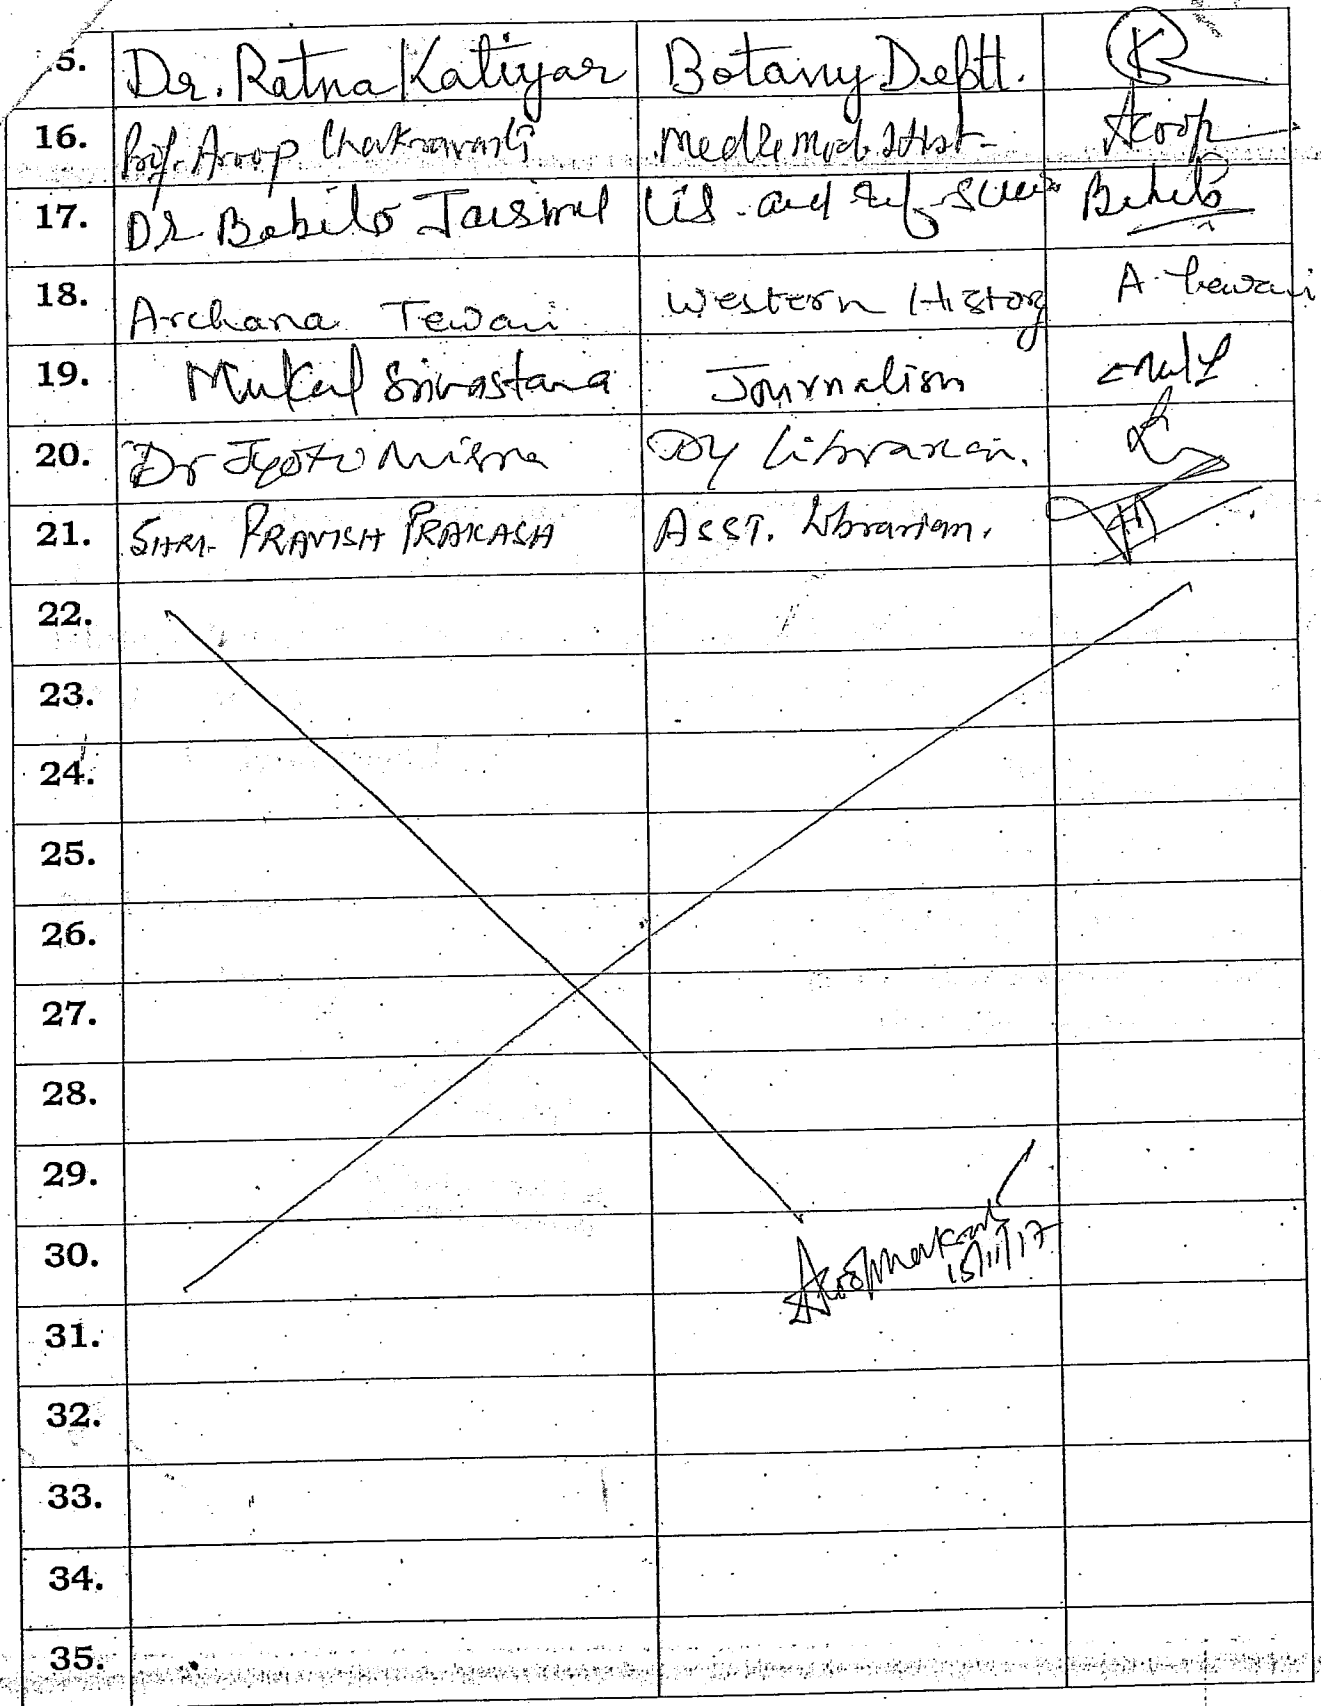 5. Dr. Ratna Katiyar Botany Deptt.
16. Prof. Aroop Chakravarti Med & Mod. Hist- Aroop
17. Dr Babita Jaiswal Lis. and Inf. Babita
18. Archana Tewari Western History A. Tewari
19. Mukul Srivastava Journalism
20. Dr Jyoti Misra Dy Librarian.
21. SHRI. PRAVISH PRAKASH ASST. Librarian.
22.
23.
24.
25.
26.
27.
28.
29.
30. 15/11/17
31.
32.
33.
34.
35.